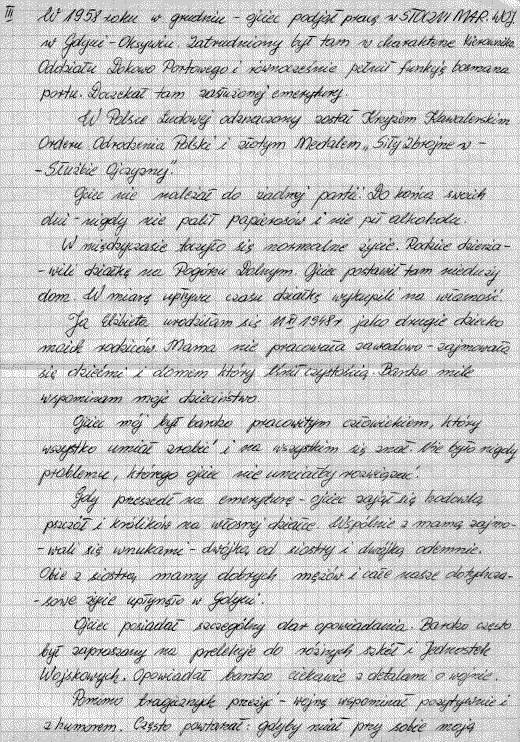 III
W 1958 roku w grudniu - ojciec podjął pracę w STOCZNI MAR. WOJ.
w Gdyni - Oksywiu. Zatrudniony był tam w charakterze kierownika
Oddziału Dokowo Portowego i równocześnie pełnił funkcję bosmana
portu. Doczekał tam zasłużonej emerytury.
W Polsce Ludowej odznaczony został Krzyżem Kawalerskim
Orderu Odrodzenia Polski i złotym Medalem „Siły Zbrojne w -
- Służbie Ojczyzny."
Ojciec nie należał do żadnej partii. Do końca swoich
dni - nigdy nie palił papierosów i nie pił alkoholu.
W międzyczasie toczyło się normalne życie. Rodzice dzierża-
- wili działkę na Pogórzu Dolnym. Ojciec postawił tam nieduży
dom. W miarę upływu czasu działkę wykupili na własność.
Ja Elżbieta urodziłam się 1948r jako drugie dziecko
moich rodziców. Mama nie pracowała zawodowo - zajmowała
się dziećmi i domem który lśnił czystością. Bardzo mile
wspominam moje dzieciństwo.
Ojciec mój był bardzo pracowitym człowiekiem, który
wszystko umiał zrobić i na wszystkim się znał. Nie było nigdy
problemu, którego ojciec nie umiałby rozwiązać.
Gdy przeszedł na emeryturę - ojciec zajął się hodowlą
pszczół i królików na własnej działce. Wspólnie z mamą zajmo-
- wali się wnukami - dwójką od siostry i dwójką odemnie.
Obie z siostrą mamy dobrych mężów i całe nasze dotychcza-
- sowe życie upłynęło w Gdyni.
Ojciec posiadał szczególny dar opowiadania. Bardzo często
był zapraszany na prelekcje do różnych szkół i Jednostek
Wojskowych. Opowiadał bardzo ciekawie z detalami o wojnie.
Pomimo tragicznych przeżyć - wojnę wspominał pozytywnie i
z humorem. Często powtarzał: gdyby miał przy sobie moją